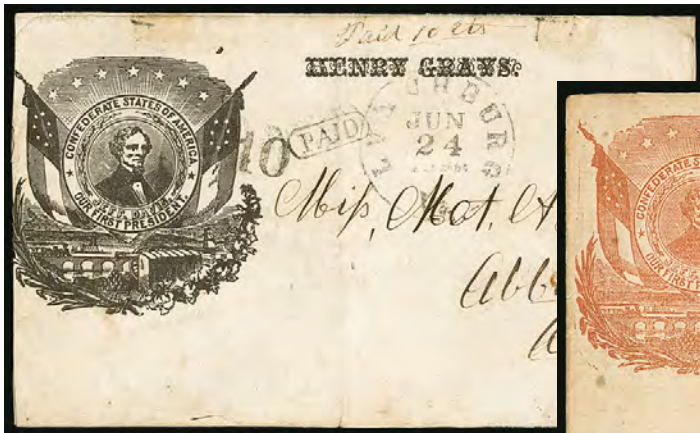 Paid 10 cts
HENRY GRAYS.
CONFEDERATE STATES OF AMERICA
JEFF. DAVIS.
OUR FIRST PRESIDENT.
10 PAID
LYNCHBURG
JUN
24
Miss, Mat, A
Abb
A
CONFEDERATE S
OUR FIRST